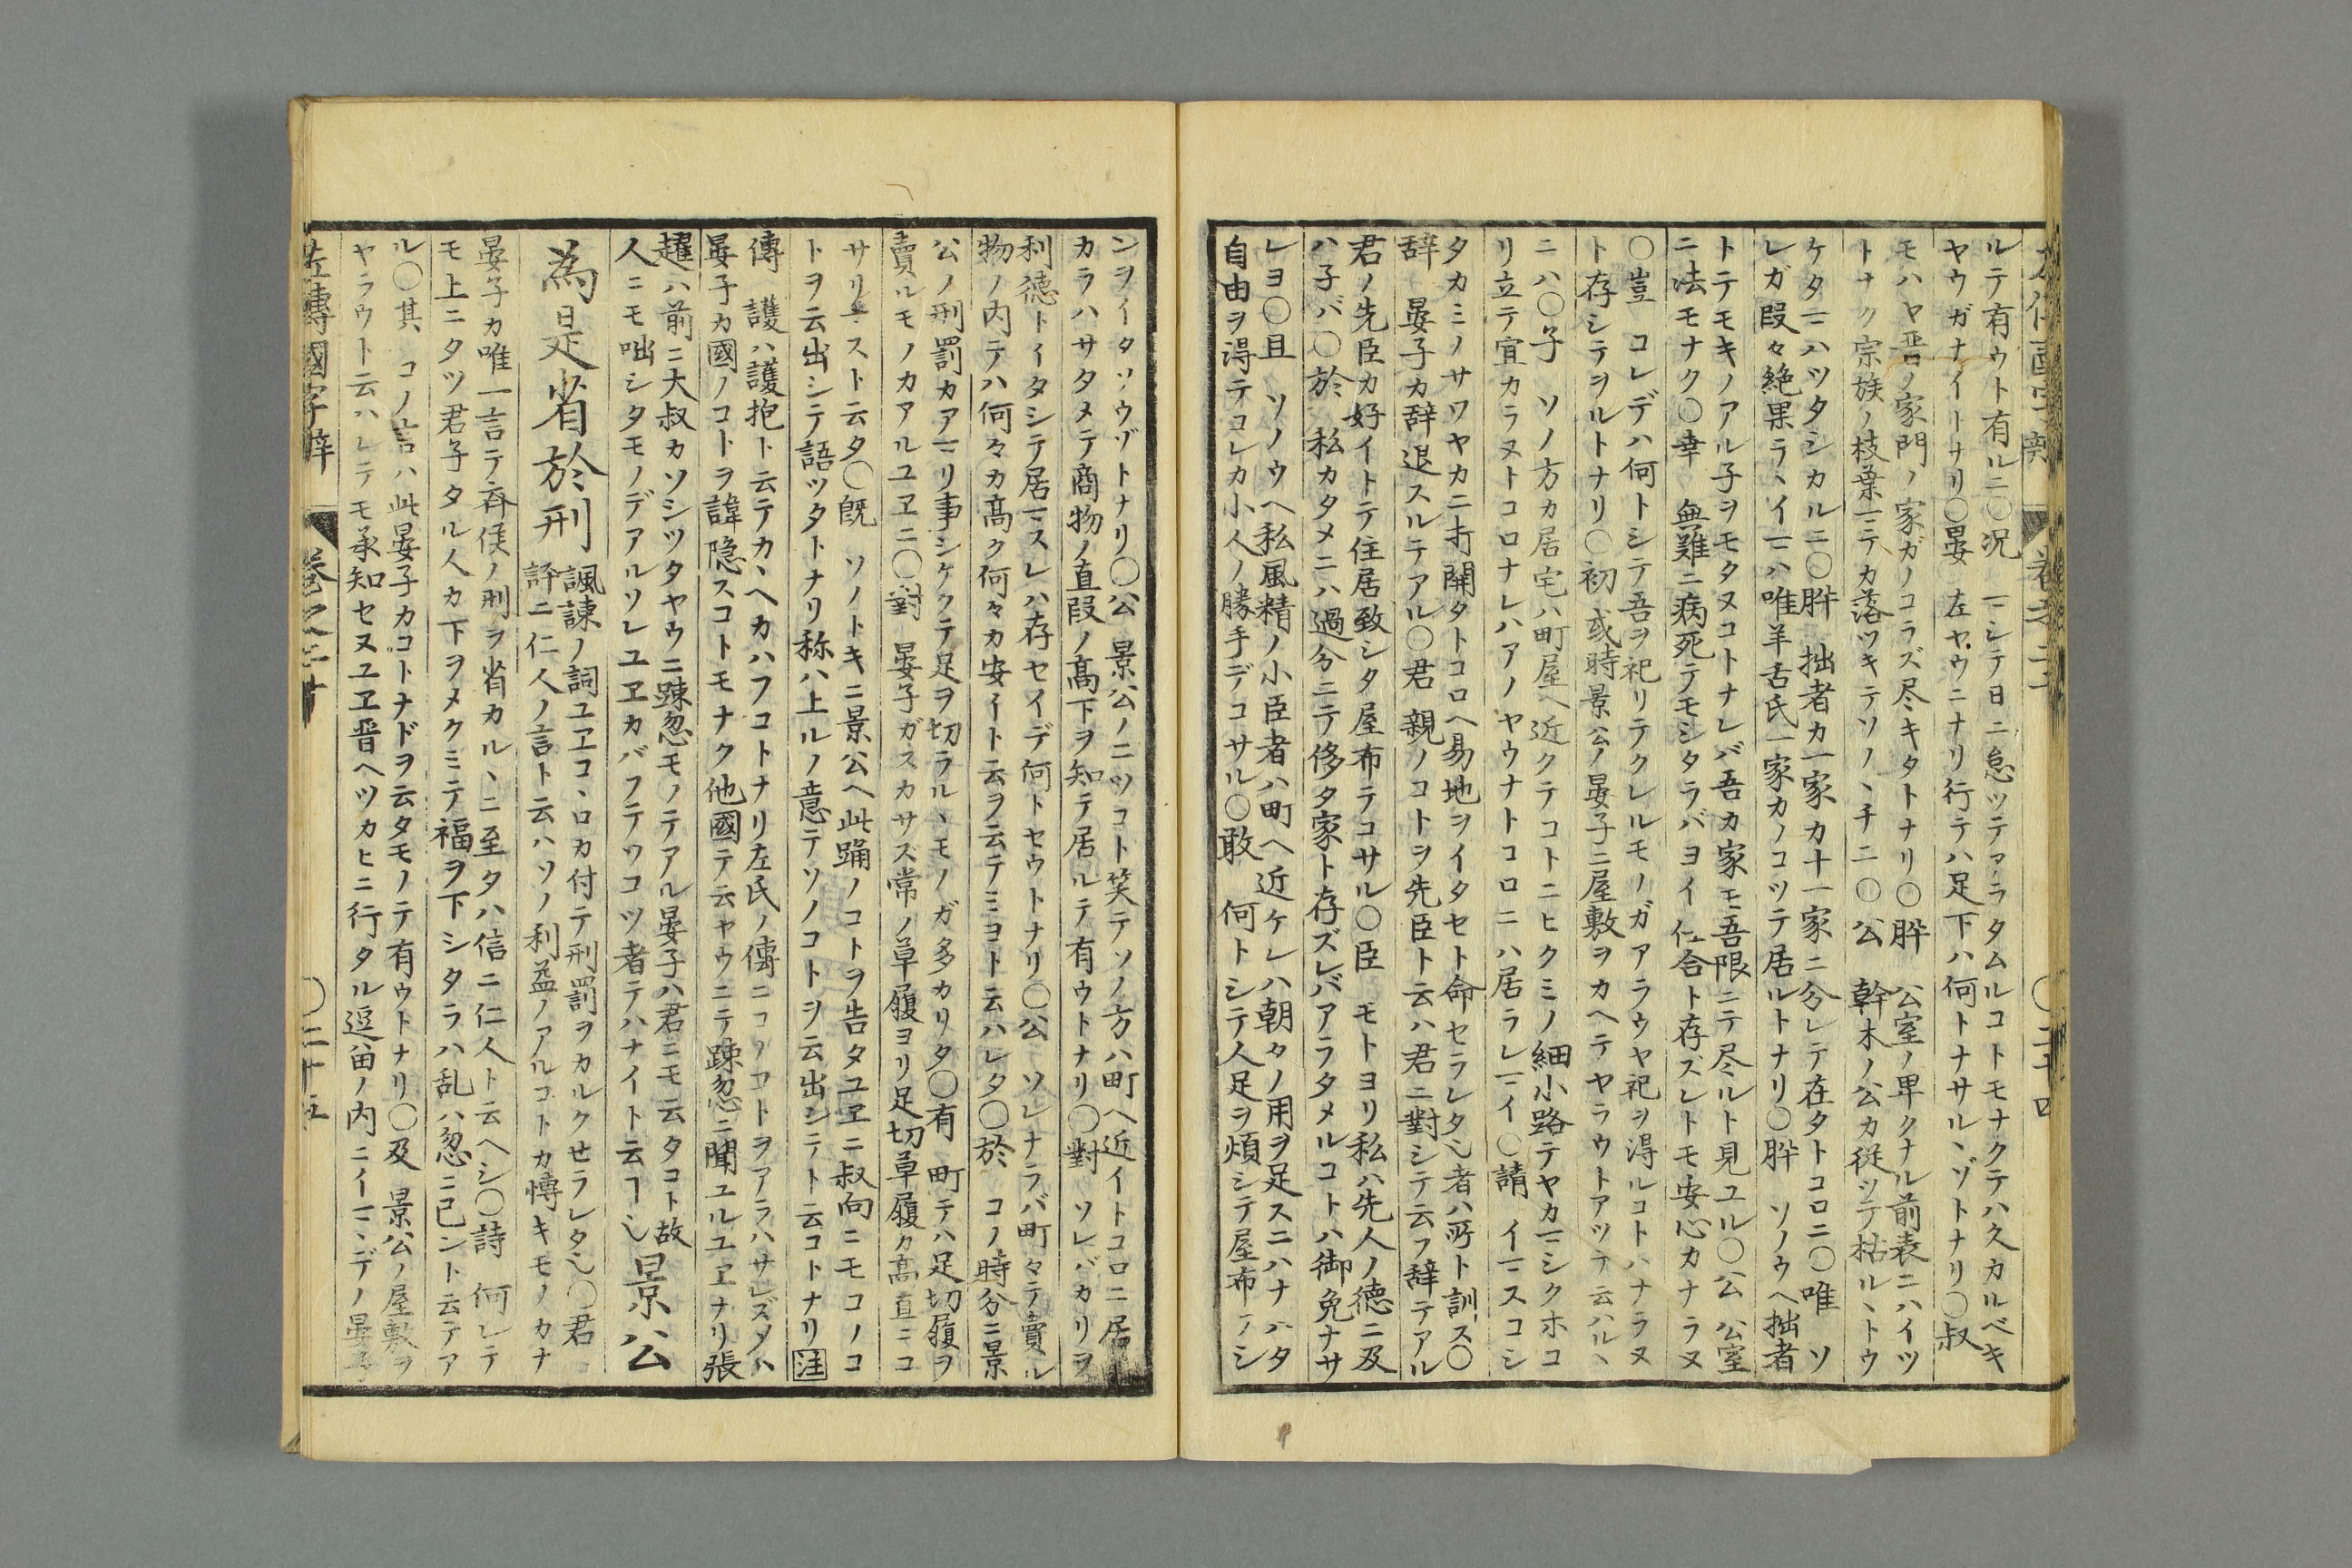 ルテ有ウト有ルニ〇况 一シテ日ニ怠ツテアラタムルコトモナクテハ久カルベキ
ヤウガナイトナリ〇晏 左ヤウニナリ行テハ足下ハ何トナサルヽゾトナリ〇叔
モハヤ晋ノ家門ノ家ガノコラズ尽キタトナリ〇肸 公室ノ卑クナル前表ニハイツ
トナク宗族ノ枝葉一ニテカ落ツキテソノヽチニ〇公 幹木ノ公カ従ツテ枯ルヽトウ
ケタマハツタシカルニ〇肸 拙者カ一家カ十一家ニ分レテ在タトコロニ〇唯 ソ
レガ段々絶果ラヽイマハ唯羊舌氏一家カノコツテ居ルトナリ〇肸 ソノウヘ拙者
トテモキノアル子ヲモタヌコトナレバ吾カ家モ吾限ニテ尽ルト見ユル〇公 公室
ニ法モナク〇幸 無難ニ病死テモシタラバヨイ仕合ト存ズレトモ安心カナラヌ
〇豈 コレデハ何トシテ吾ヲ祀リテクレルモノガアラウヤ祀ヲ得ルコトハナラヌ
ト存シテヲルトナリ〇初 或時景公ノ晏子ニ屋敷ヲカヘテヤラウトアツテ云ハルヽ
ニハ〇子 ソノ方カ居宅ハ町屋ヘ近クテコトニヒクミノ細小路テヤカマシクホコ
リ立テ宜カラヌトコロナレハアノヤウナトコロニハ居ラレマイ〇請 イマスコシ
タカミノサワヤカニ打開タトコロヘ易地ヲイタセト命セラレタ乁者ハ所ト訓ス〇
辞 晏子カ辞退スルテアル〇君 親ノコトヲ先臣ト云ハ君ニ對シテ云フ辞テアル
君ノ先臣カ好イトテ住居致シタ屋布テコサル〇臣 モトヨリ私ハ先人ノ徳ニ及
ハ子バ〇於 私カタメニハ過分ニテ侈タ家ト存ズレバアラタメルコトハ御免ナサ
レヨ〇且 ソノウヘ私風精ノ小臣者ハ町ヘ近ケレハ朝夕ノ用ヲ足スニハナハタ
自由ヲ得テコレカ小人ノ勝手デコサル〇敢 何トシテ人足ヲ煩シテ屋布フシ
ンヲイタソウゾトナリ〇公 景公ノニツコト笑テソノ方ハ町ヘ近イトコロニ居
カラハサタメテ商物ノ直段ノ高下ヲ知テ居ルテ有ウトナリ〇對 ソレバカリヲ
利徳トイタシテ居マスレハ存セイデ何トセウトナリ〇公 ソレナラバ町々テ賣ル
物ノ内テハ何々カ高ク何々カ安イト云ヲ云テミヨト云ハレタ〇於 コノ時分ニ景
公ノ刑罰カアマリ事シケクテ足ヲ切ラルヽモノガ多カリタ〇有 町テハ足切履ヲ
賣ルモノカアルユヱニ〇對 晏子ガスカサズ常ノ草履ヨリ足切草履カ高直ニコ
サリマスト云タ〇既 ソノトキニ景公ヘ此踊ノコトヲ告タユヱニ叔向ニモコノコ
トヲ云出シテ語ツタトナリ称ハ上ルノ意テソノコトヲ云出シテト云コトナリ注
傳 護ハ護抱ト云テカヽヘカハフコトナリ左氏ノ傳ニコノコトヲアラハサレズメハ
晏子カ國ノコトヲ諱隠スコトモナク他國テ云ヤウニテ踈忽ニ聞ユルユヱナリ張
趯ハ前ニ大叔カソシツタヤウニ踈忽モノテアル晏子ハ君ニモ云タコト故
人ニモ咄シタモノデアルソレユヱカバフテワコツ者テハナイト云フ乁 景公
為是省於刑
諷諌ノ詞ユヱコヽロカ付テ刑罰ヲカルクせラレタ乁〇君
評ニ仁人ノ言ト云ハソノ利益ノアルコトカ慱キモノカナ
晏子カ唯一言テ斉侯ノ刑ヲ省カルヽニ至タハ信ニ仁人ト云ヘシ〇詩 何レテ
モ上ニタツ君子タル人カ下ヲメクミテ福ヲ下シタラハ乱ハ忽ニ已ント云テア
ル〇其 コノ言ハ此晏子カコトナドヲ云タモノテ有ウトナリ〇及 景公ノ屋敷ヲ
ヤラウト云ハレテモ承知セヌユヱ晋ヘツカヒニ行タル逗留ノ内ニイマヽデノ晏子
左傳國字辯